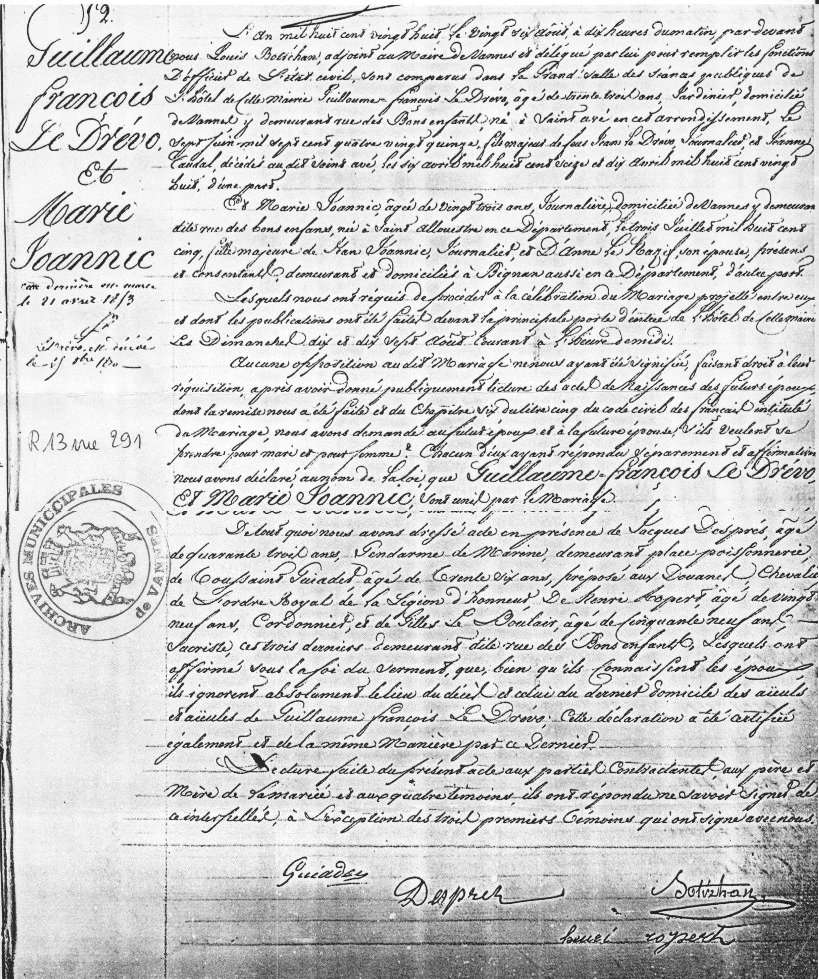 52.
Guillaume
françois
Le Drévo,
Et
Marie
Joannic
cette dernière est morte
le 21 avril 1853
Le Drévo, est décédé
le
R 13 vue 291
ARCHIVES MUNICIPALES de VANNES
L'An mil huit cent vingt huit le vingt six Août, à dix heures du matin, par devant
nous Louis Botschan, adjoint au Maire de Vannes et délégué par lui pour remplir les fonctions
D'officier de L'état civil, sont comparus dans la Grand'salle des séances publiques de
l'hôtel de cette mairie Guillaume-françois Le Drévo, âgé de trente trois ans, Jardinier, domicilié
de Vannes y demeurant rue des Bons enfants, né à Saint avé en cet arrondissement, le
sept Juin mil sept cent quatre vingt quinze, fils majeur de feus Jean le Drévo, Journalier, et Jeanne
Caudal décédés au dit Saint avé, les six avril mil huit cent seize et dix avril mil huit cent vingt
huit, d'une part.
Et Marie Joannic, âgée de vingt trois ans, Journalière, domiciliée de Vannes y demeurant
dite rue des bons enfans, née à Saint Allouestre en ce Département, le trois Juillet mil huit cent
cinq, fille majeure de Jean Joannic, Journalier, et D'Anne Le son épouse, présens
et consentants, demeurant et domiciliés à Bignan aussi en ce Département, d'autre part.
Lesquels nous ont requis de procéder à la célébration du Mariage projetté entre eux
et dont les publications ont été faites devant la principale porte d'entrée de l'hôtel de cette mairie
Les Dimanches dix et dix sept Août courant à l'heure de midi.
Aucune opposition au dit Mariage ne nous ayant été signifiée, faisant droit à leur
réquisition, après avoir donné publiquement lecture des actes de Naissances des futurs époux,
dont la remise nous a été faite et du Chapitre six du titre cinq du code civil des français intitulé
du Mariage, nous avons demandé au futur époux et à la future épouse, s'ils veulent se
prendre pour mari et pour femme. Chacun d'eux ayant répondu séparément et affirmativement
nous avons déclaré au nom de la loi, que Guillaume-françois Le Drévo
Et Marie Joannic, sont unis par le Mariage
De tout quoi nous avons dressé acte en présence de Jacques Desprès, âgé
de quarante trois ans, Gendarme de Marine, demeurant place poissonnerie,
de Toussaint Guiader âgé de trente six ans, préposé aux Douanes, Chevalier
de l'ordre Royal de la Légion d'honneur, De Henri Ropert, âgé de vingt
neuf ans, Cordonnier, et de Gilles Le Boulair, âgé de cinquante neuf ans,
Sacriste, ces trois derniers demeurant dite rue des Bons enfants, Lesquels ont
affirmé sous la foi du serment, que, bien qu'ils connaissent les époux
ils ignorent absolument le lieu du décès et celui du dernier domicile des aïeuls
et aïeules de Guillaume françois Le Drévo, Cette déclaration a été certifiée
également et de la même Manière par ce Dernier.
Lecture faite du présent acte aux parties Contractantes, aux père et
Mère de la mariée et aux quatre témoins, ils ont répondu ne savoir signer de
ce interpellés, à L'exception des trois premiers témoins qui ont signé avec nous.
Guiader
Desprez
Botschan
henri ropert